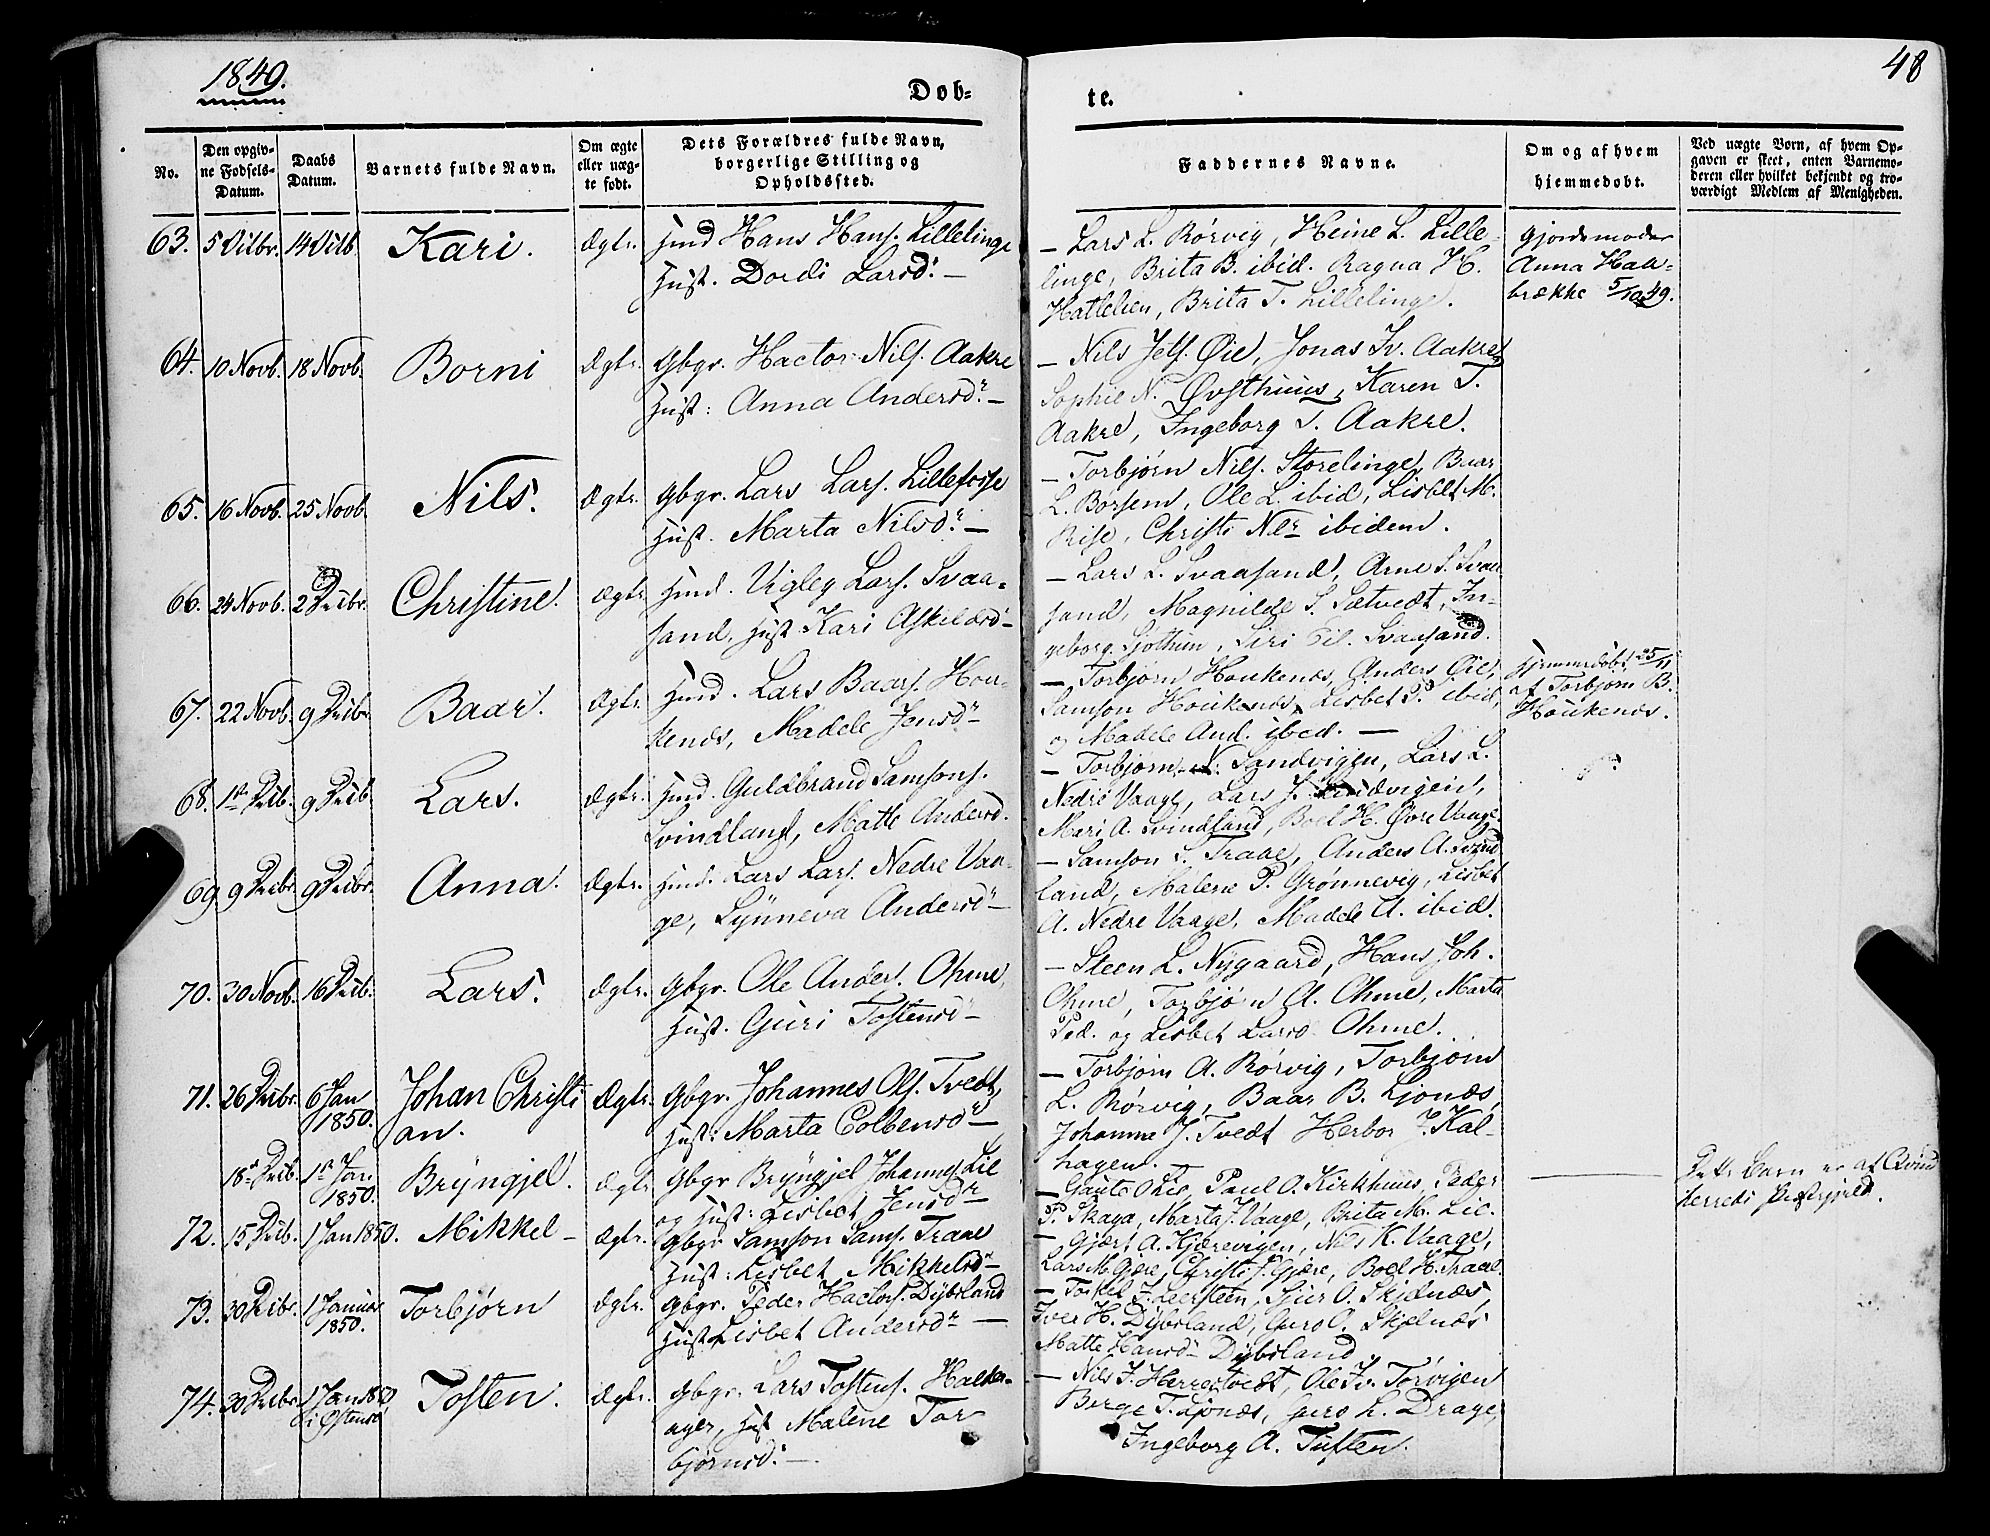 1849.
48
Dob-
te.
No.
Den opgiv-
ne Fødsels-
Datum.
Daabs
Datum.
Barnets fulde Navn.
Om ægte
eller uæg-
te født.
Dets Forældres fulde Navn,
borgerlige Stilling og
Opholdssted.
Faddernes Navne.
Om og af hvem
hjemmedøbt.
Ved uægte Børn, af hvem Op-
gaven er skeet, enten Barnemo-
deren eller hvilket bekjendt og tro-
værdigt Medlem af Menigheden.
63. 14 Kari. Ægte. Hmd Hans Hans. Lillelinge
Hust. Dordi Larsd: —
— Lars L. Rørvig, Heine L. Lille-
linge, Brita B. ibid. Ragna H.
Hattelien, Brita T. Lillelinge.
Gjordemoder
Anna Haa-
brække 5/10 49.
64. 10 Novb. 18 Novb. Borni Ægte. Gbgr. Hactor Nils. Aakre
Hust: Anna Andersdr. —
— Nils Øie, Jonas Iv. Aakre,
Sophie N. Øvsthuus, Karen T.
Aakre, Ingeborg T. Aakre.
65. 16 Novb. 25 Novb. Nils. Ægte. Gbgr. Lars Lars. Lillefosse
Hust. Marta Nilsdr. —
— Torbjørn Nils. Storelinge, Baar
L. Børsem, Ole L. ibid, Lisbet M.
Rise, Christi ibidem.
66. 24 Novb. 2 Christine. Ægte Hmd. Vigleg Lars. Svaa-
sand, Hust Kari Askilsd —
— Lars L. Svaasand, Arne S. Svaa
sand, Magnilde S. Sætvedt, In-
geborg Siri Svaasand.
67. 22 Novb. 9 Baar. Ægte. Hmd. Lars Baars. Hou-
kenæs, Madele Jensdr
— Torbjørn Houkenæs, Anders Øie,
Samson Houkenæs, Lisbet P. ibid,
og Madele And. ibid. —
Hjemmedøbt 25/11
af Torbjørn B.
Houkenæs.
68. 1ste 9 Lars. Ægte. Hmd. Guldbrand Samsons.
Svindland, Matte Andersd.
— Torbjørn Sandvigen, Lars L.
Nedre Vaage, Lars J.
Mari A. Svindland, Boel H. Øvre Vaage
69 9 9 Anna. Ægte. Hmd. Lars Lars. Nedre Vaa-
ge, Synneva Andersdr —
— Samson S. Traae, Anders A. Svind
land, Malene P. Grønnevig, Lisbet
A. Nedre Vaage, Madele A. ibid.
70. 30 Novb. 16 Lars. Ægte. Gbgr. Ole Anders. Ohme,
Hust. Guri Tostensdr —
— Steen L. Nygaard, Hans Joh.
Ohme, Torbjørn A. Ohme, Marta
Ped. og Lisbet Larsd Ohme.
71. 26 6 Jan Johan Christi Ægte. Gbgr. Johannes Ols. Tvedt,
1850. an. Hust: Marta Colbensdr —
— Torbjørn A. Rørvig, Torbjørn
L. Rørvig, Baar B. Ljonæs,
Johanne J. Tvedt Herbor J. Kal-
hagen.
18de 1ste Jan Bryngjel. Ægte Gbgr Bryngjel Johannes Lie
1850. og Hust: Lisbet Jensdr
— Gaute O. Lie, Paul O. Kirkhuus, Peder
P. Skaga, Marta J. Vaage, Brita M. Lie.
Dette Barn er af Qvind
herreds Præstegjeld.
72. 15 1 Jan 1850. Mikkel — Ægte. Gbgr Samson Sams. Traae
Hust: Lisbet Mikkelsdr —
— Gjært A. Kjærevigen, Nils K. Vaage,
Lars M. Gjøre, Christi J. Gjøre, Boel H. Traae.
73. 30 1 Januar Torbjørn Ægte. Gbgr. Peder Hactors. Dybsland
1850. Hust Lisbet Andersdr —
— Torkel Sjur O. Skjelnæs,
Iver H. Dybsland, Guro O. Skjelnæs
Matte Hansdr Dybsland.
74. 30 1 Jan 1850 Tosten. Ægte. Gbgr. Lars Tostens. Halder-
i Østensø ager, Hust Malene Tor
bjørnsd: —.
— Nils J. Herrestvedt, Ole Iv. Tørvigen
Børge T. Ljonæs, Guro L. Drage,
Ingeborg A. Tuften.